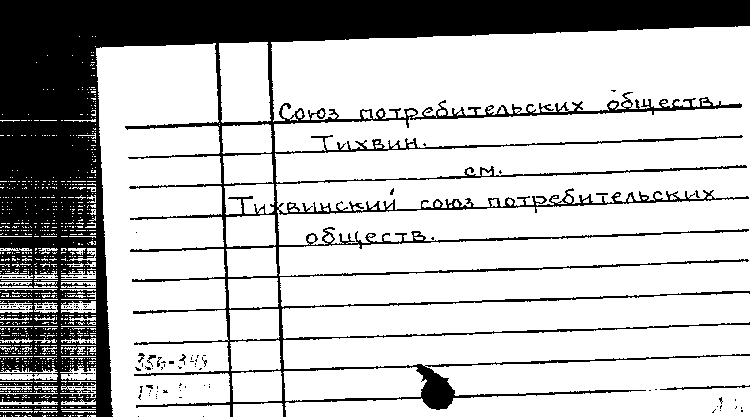 Союз потребительских обществ.
Тихвин.
см.
Тихвинский союз потребительских
обществ.
356-349